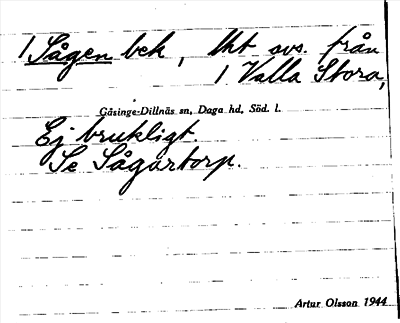 1 Sågen bek, lht avs. från
1 Valla Stora,
Gåsinge-Dillnäs sn, Daga hd, Söd. l.
Ej brukligt.
Se Sågartorp.
Artur Olsson 1944